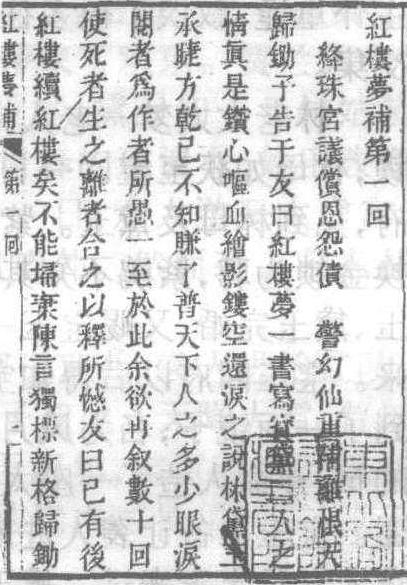 紅樓夢補第一回
絳珠宮議償恩怨債 警幻仙重補離恨天
歸鋤子告于友曰紅樓夢一書寫寶黛二人之
情眞是鑽心嘔血繪影鏤空還淚之說林黛玉
承睫方乾已不知賺了普天下人之多少眼淚
閱者爲作者所愚一至於此余欲再叙數十回
使死者生之離者合之以釋所憾友曰已有後
紅樓續紅樓矣不能掃棄陳言獨標新格歸鋤
紅樓夢補 第一回 一